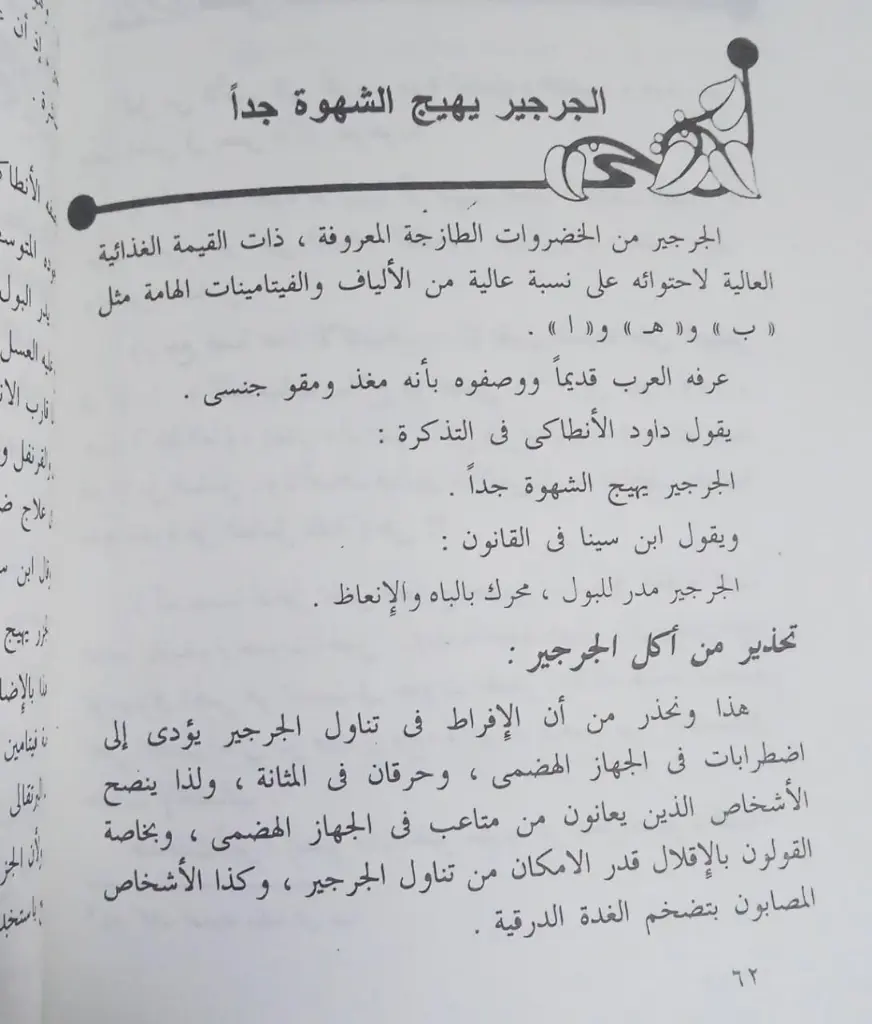 الجرجير يهيج الشهوة جداً
الجرجير من الخضروات الطازجة المعروفة ، ذات القيمة الغذائية
العالية لاحتوائه على نسبة عالية من الألياف والفيتامينات الهامة مثل
« ب » و« هـ » و« ا » .
عرفه العرب قديماً ووصفوه بأنه مغذ ومقو جنسى .
يقول داود الأنطاكى فى التذكرة :
الجرجير يهيج الشهوة جداً .
ويقول ابن سينا فى القانون :
الجرجير مدر للبول ، محرك بالباه والإنعاظ .
تحذير من أكل الجرجير :
هذا ونحذر من أن الإفراط فى تناول الجرجير يؤدى إلى
اضطرابات فى الجهاز الهضمى ، وحرقان فى المثانة ، ولذا ينصح
الأشخاص الذين يعانون من متاعب فى الجهاز الهضمى ، وبخاصة
القولون بالإقلال قدر الامكان من تناول الجرجير ، وكذا الأشخاص
المصابون بتضخم الغدة الدرقية .
٦٢